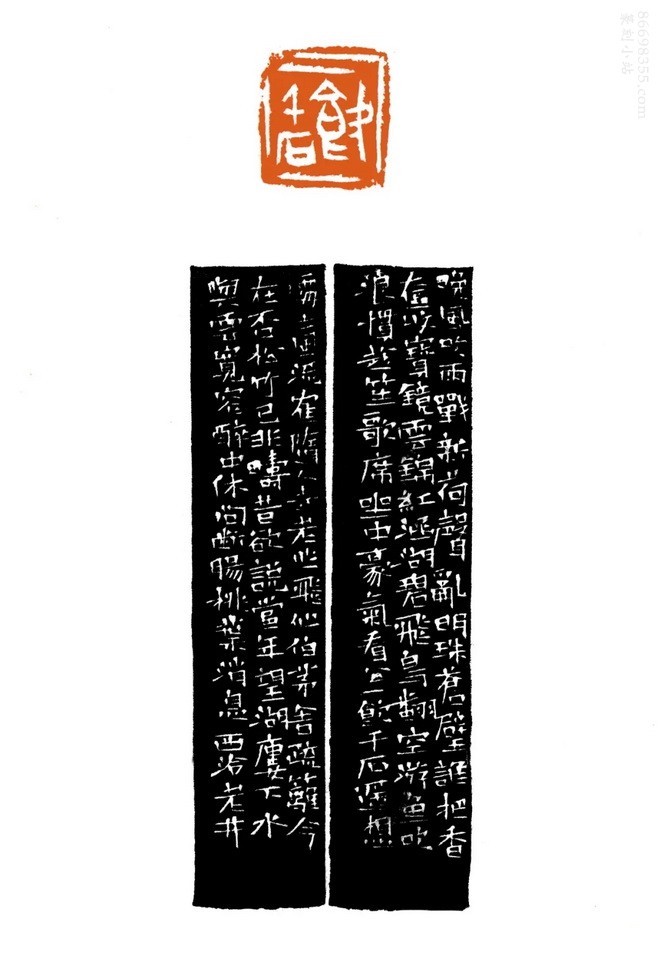 飲千石
晚風吹雨戰新荷聲亂明珠蒼璧誰把香
奩收寶鏡雲錦紅涵湖碧飛鳥翻空游魚吹
浪慣趁笙歌席坐中豪氣看公一飲千石遥想
處士風流鶴隨人去老作飛仙伯茅舍疏籬今
在否松竹已非疇昔欲說當年望湖樓下水
與雲寬窄醉中休問斷腸桃葉消息西泠老井
86698355.com
篆刻小站